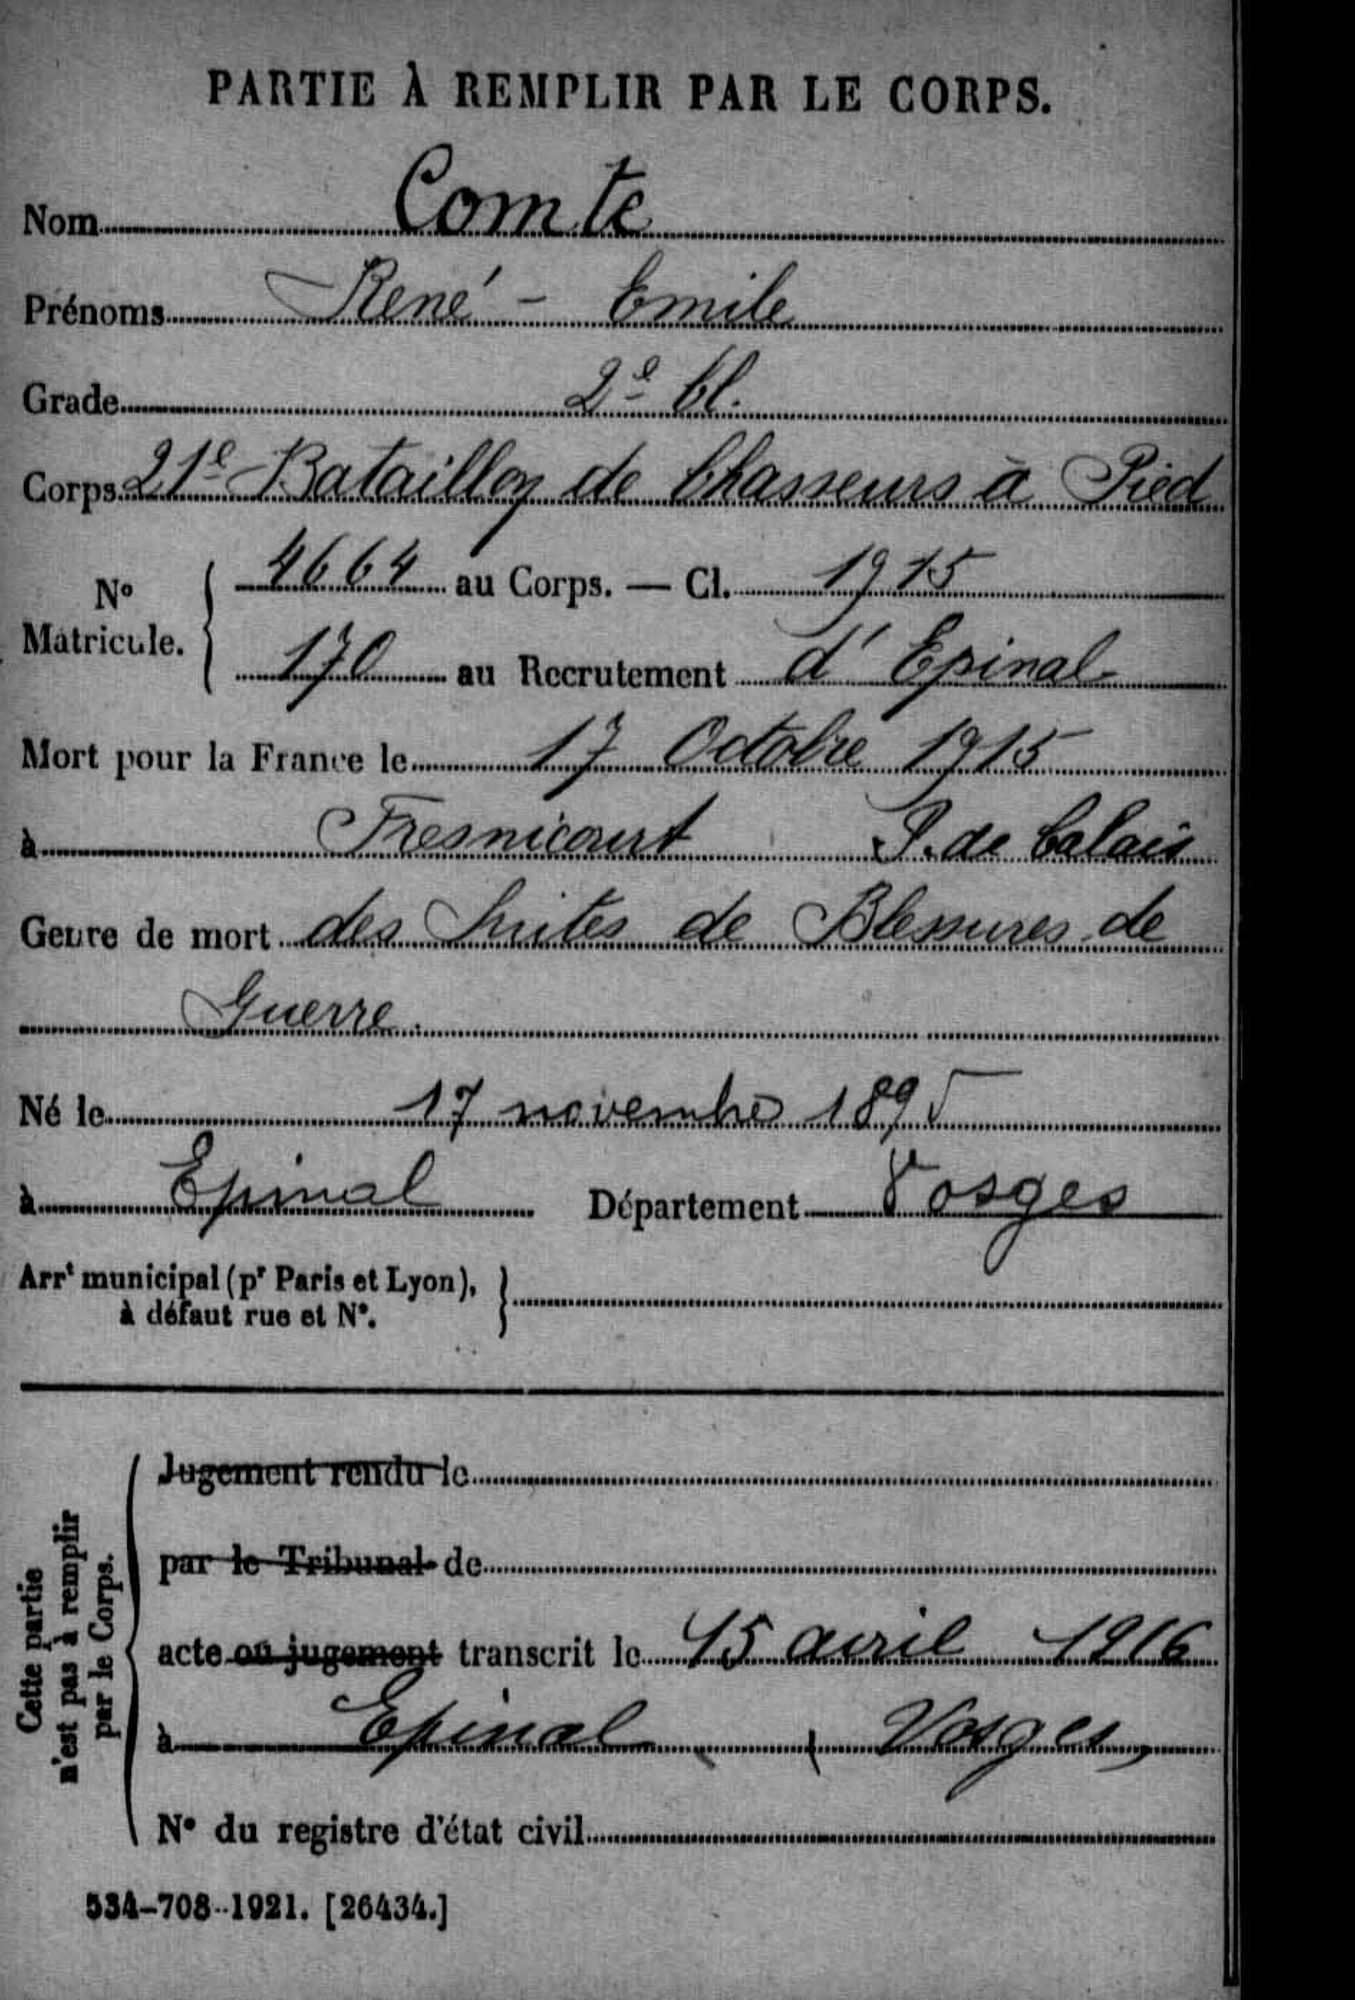 PARTIE À REMPLIR PAR LE CORPS.
Nom Comte
Prénoms René - Emile
Grade 2e Cl.
Corps 21e Bataillon de Chasseurs à Pied
No Matricule. { 4664 au Corps. — Cl. 1915
170 au Recrutement d'Epinal
Mort pour la France le 17 Octobre 1915
à Fresnicourt P. de Calais
Genre de mort des Suites de Blessures de
Guerre.
Né le 17 novembre 1895
à Epinal Département Vosges
Arrt municipal (pr Paris et Lyon),
à défaut rue et No. }
Cette partie
n'est pas à remplir
par le Corps.
Jugement rendu le
par le Tribunal de
acte ou jugement transcrit le 15 avril 1916
à Epinal ( Vosges,
No du registre d'état civil
534-708-1921. [26434.]